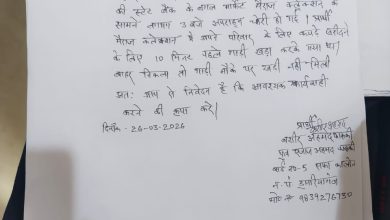 की स्टेट बैंक के बगल मार्केट मैराज कलेक्शन के
सामने लगभग 3 बजे अपराह्न चोरी हो गई। प्रार्थी
मैराज कलेक्शन से अपने परिवार के लिए कपड़े खरीदने
के लिए 10 मिनट पहले गाड़ी खड़ा करके गया था।
बाहर निकला तो गाड़ी मौके पर खड़ी नहीं मिली
अतः आप से निवेदन है कि आवश्यक कार्यवाही
करने की कृपा करें।
दिनाँक - 26-03-2026
प्रार्थी
बशीर अहमद
पुत्र अहमद
वार्ड नं०-5
न. पं. डुमरियागंज
मो०नं० 9839276730